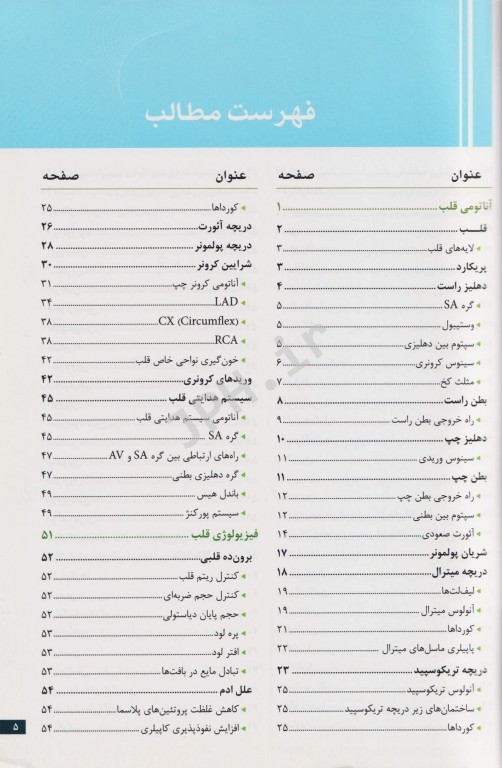 فهرست مطالب
عنوان صفحه
آناتومی قلب ۱
قلـــب ۲
لایه‌های قلب ۳
پریکارد ۳
دهلیز راست ۴
گره SA ۵
وستیبول ۵
سپتوم بین دهلیزی ۵
سینوس کرونری ۶
مثلث کخ ۷
بطن راست ۷
راه خروجی بطن راست ۹
دهلیز چپ ۱۰
سینوس وریدی ۱۱
بطن چپ ۱۱
راه خروجی بطن چپ ۱۲
سپتوم بین بطنی ۱۲
آئورت صعودی ۱۴
شریان پولمونر ۱۷
دریچه میترال ۱۸
لیف‌لت‌ها ۱۹
آنولوس میترال ۱۹
کورداها ۲۱
پاپیلری ماسل‌های میترال ۲۲
دریچه تریکوسپید ۲۳
آنولوس تریکوسپید ۲۵
ساختمان‌های زیر دریچه تریکوسپید ۲۵
کورداها ۲۵
عنوان صفحه
کورداها ۲۵
دریچه آئورت ۲۶
دریچه پولمونر ۲۸
شرایین کرونر ۳۰
آناتومی کرونر چپ ۳۱
LAD ۳۴
CX (Circumflex) ۳۸
RCA ۳۸
خون‌گیری نواحی خاص قلب ۴۲
وریدهای کرونری ۴۲
سیستم هدایتی قلب ۴۵
آناتومی سیستم هدایتی قلب ۴۵
گره SA ۴۵
راه‌های ارتباطی بین گره SA و AV ۴۷
گره دهلیزی بطنی ۴۷
باندل هیس ۴۹
سیستم پورکنژ ۴۹
فیزیولوژی قلب ۵۱
برون‌ده قلبی ۵۲
کنترل ریتم قلب ۵۲
کنترل حجم ضربه‌ای ۵۲
حجم پایان دیاستولی ۵۲
پره لود ۵۳
افتر لود ۵۳
تبادل مایع در بافت‌ها ۵۳
علل ادم ۵۴
کاهش غلظت پروتئین‌های پلاسما ۵۴
افزایش نفوذپذیری کاپیلری ۵۴
۵
JPH.ir